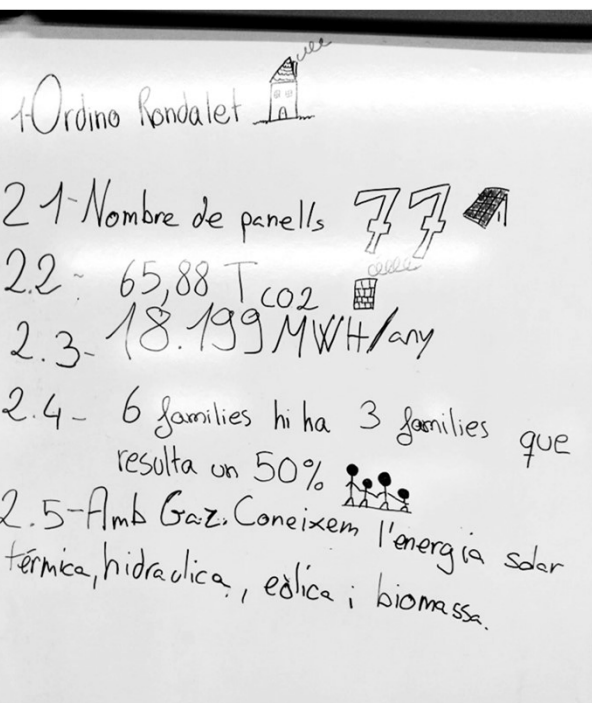 1-Ordino Rondalet
2.1-Nombre de panells 77
2.2- 65,88 T CO2
2.3- 18.199 MWH/any
2.4- 6 families hi ha 3 families que
resulta un 50%
2.5-Amb Gaz. Coneixem l'energía solar
térmica, hidraulica, eòlica i biomassa.